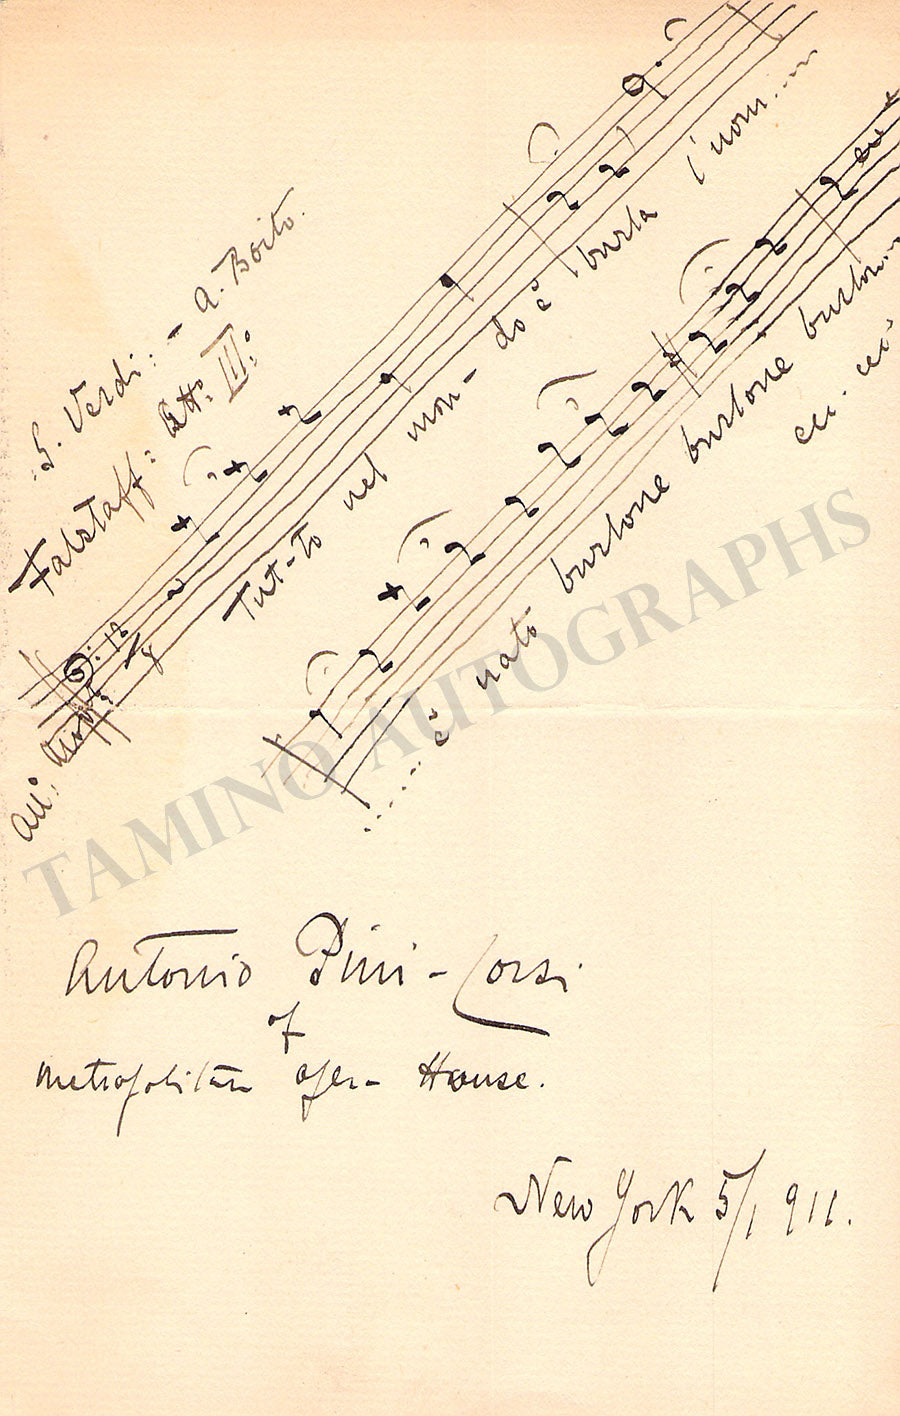 G. Verdi: - A. Boito.
Falstaff: Att: III:
All:
12
8
Tut-to nel mon-do è burla l'uom....
..... è nato burlone burlone burlone burlon...
ecc. ecc.
TAMINO AUTOGRAPHS
Antonio Pini-Corsi
of
Metropolitan Opera House.
New York 5/1 911.